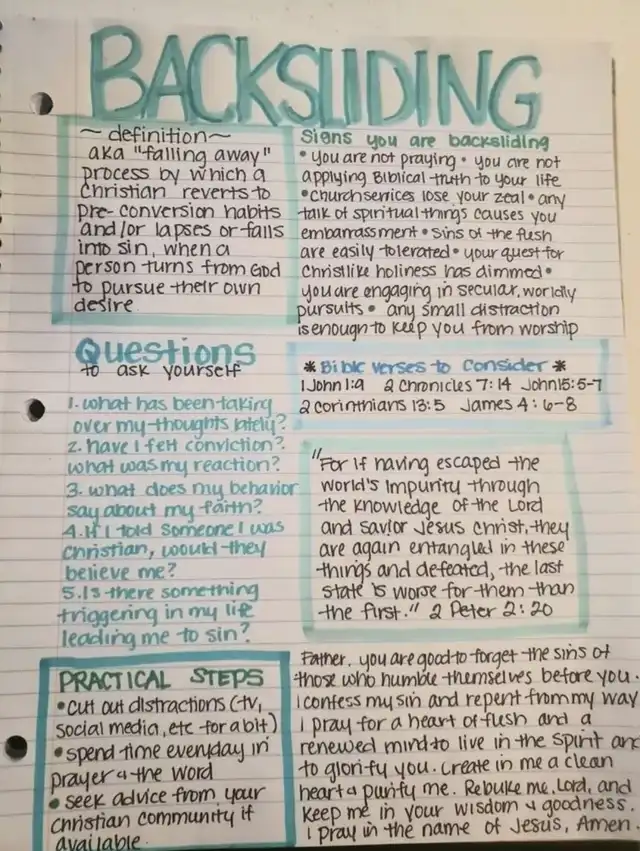 BACKSLIDING
~ definition ~
aka "falling away"
process by which a
Christian reverts to
pre-conversion habits
and/or lapses or falls
into sin, when a
person turns from God
to pursue their own
desire
Signs you are backsliding
• you are not praying • you are not
applying Biblical truth to your life
• Church services lose your zeal • any
talk of spiritual things causes you
embarrassment • sins of the flesh
are easily tolerated • your quest for
Christlike holiness has dimmed •
you are engaging in secular, worldly
pursuits • any small distraction
is enough to keep you from worship
Questions
to ask yourself
1. what has been taking
over my thoughts lately?
2. have I felt conviction?
what was my reaction?
3. what does my behavior
say about my faith?
4. If I told someone I was
Christian, would they
believe me?
5. Is there something
triggering in my life
leading me to sin?
* Bible verses to Consider *
1 John 1:9 2 Chronicles 7:14 John 15:5-7
2 Corinthians 13:5 James 4:6-8
"For if having escaped the
world's impurity through
the knowledge of the Lord
and savior Jesus Christ, they
are again entangled in these
things and defeated, the last
state is worse for them than
the first." 2 Peter 2:20
PRACTICAL STEPS
• cut out distractions (tv,
social media, etc for a bit)
• spend time everyday in
prayer & the word
• seek advice from your
Christian community if
available.
Father, you are good to forget the sins of
those who humble themselves before you.
I confess my sin and repent from my way
I pray for a heart of flesh and a
renewed mind to live in the spirit and
to glorify you. Create in me a clean
heart & purify me. Rebuke me, Lord, and
keep me in your wisdom & goodness.
I pray in the name of Jesus, Amen.